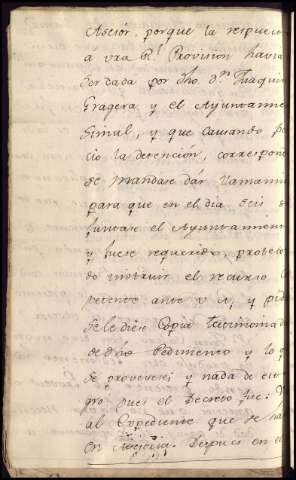 Acción, porque la respues
a vra Rl Provision havia
ser dada por dho Dn Juaquin
Gragera y el Ayuntamie
Simul, y que causando
cio la detención, correspon
se mandase dár llamami
para que en el dia seis
juntase el Ayuntamient
y fuese requerido, protes
do instruir el recurso
petente ante V A, y pid
sele diese Copia testimonia
de dho Pedimento y lo q
se proveyese; y nada de es
gró pues el Decreto fue:
al Expediente que se ha
en Justicia. Despues en e